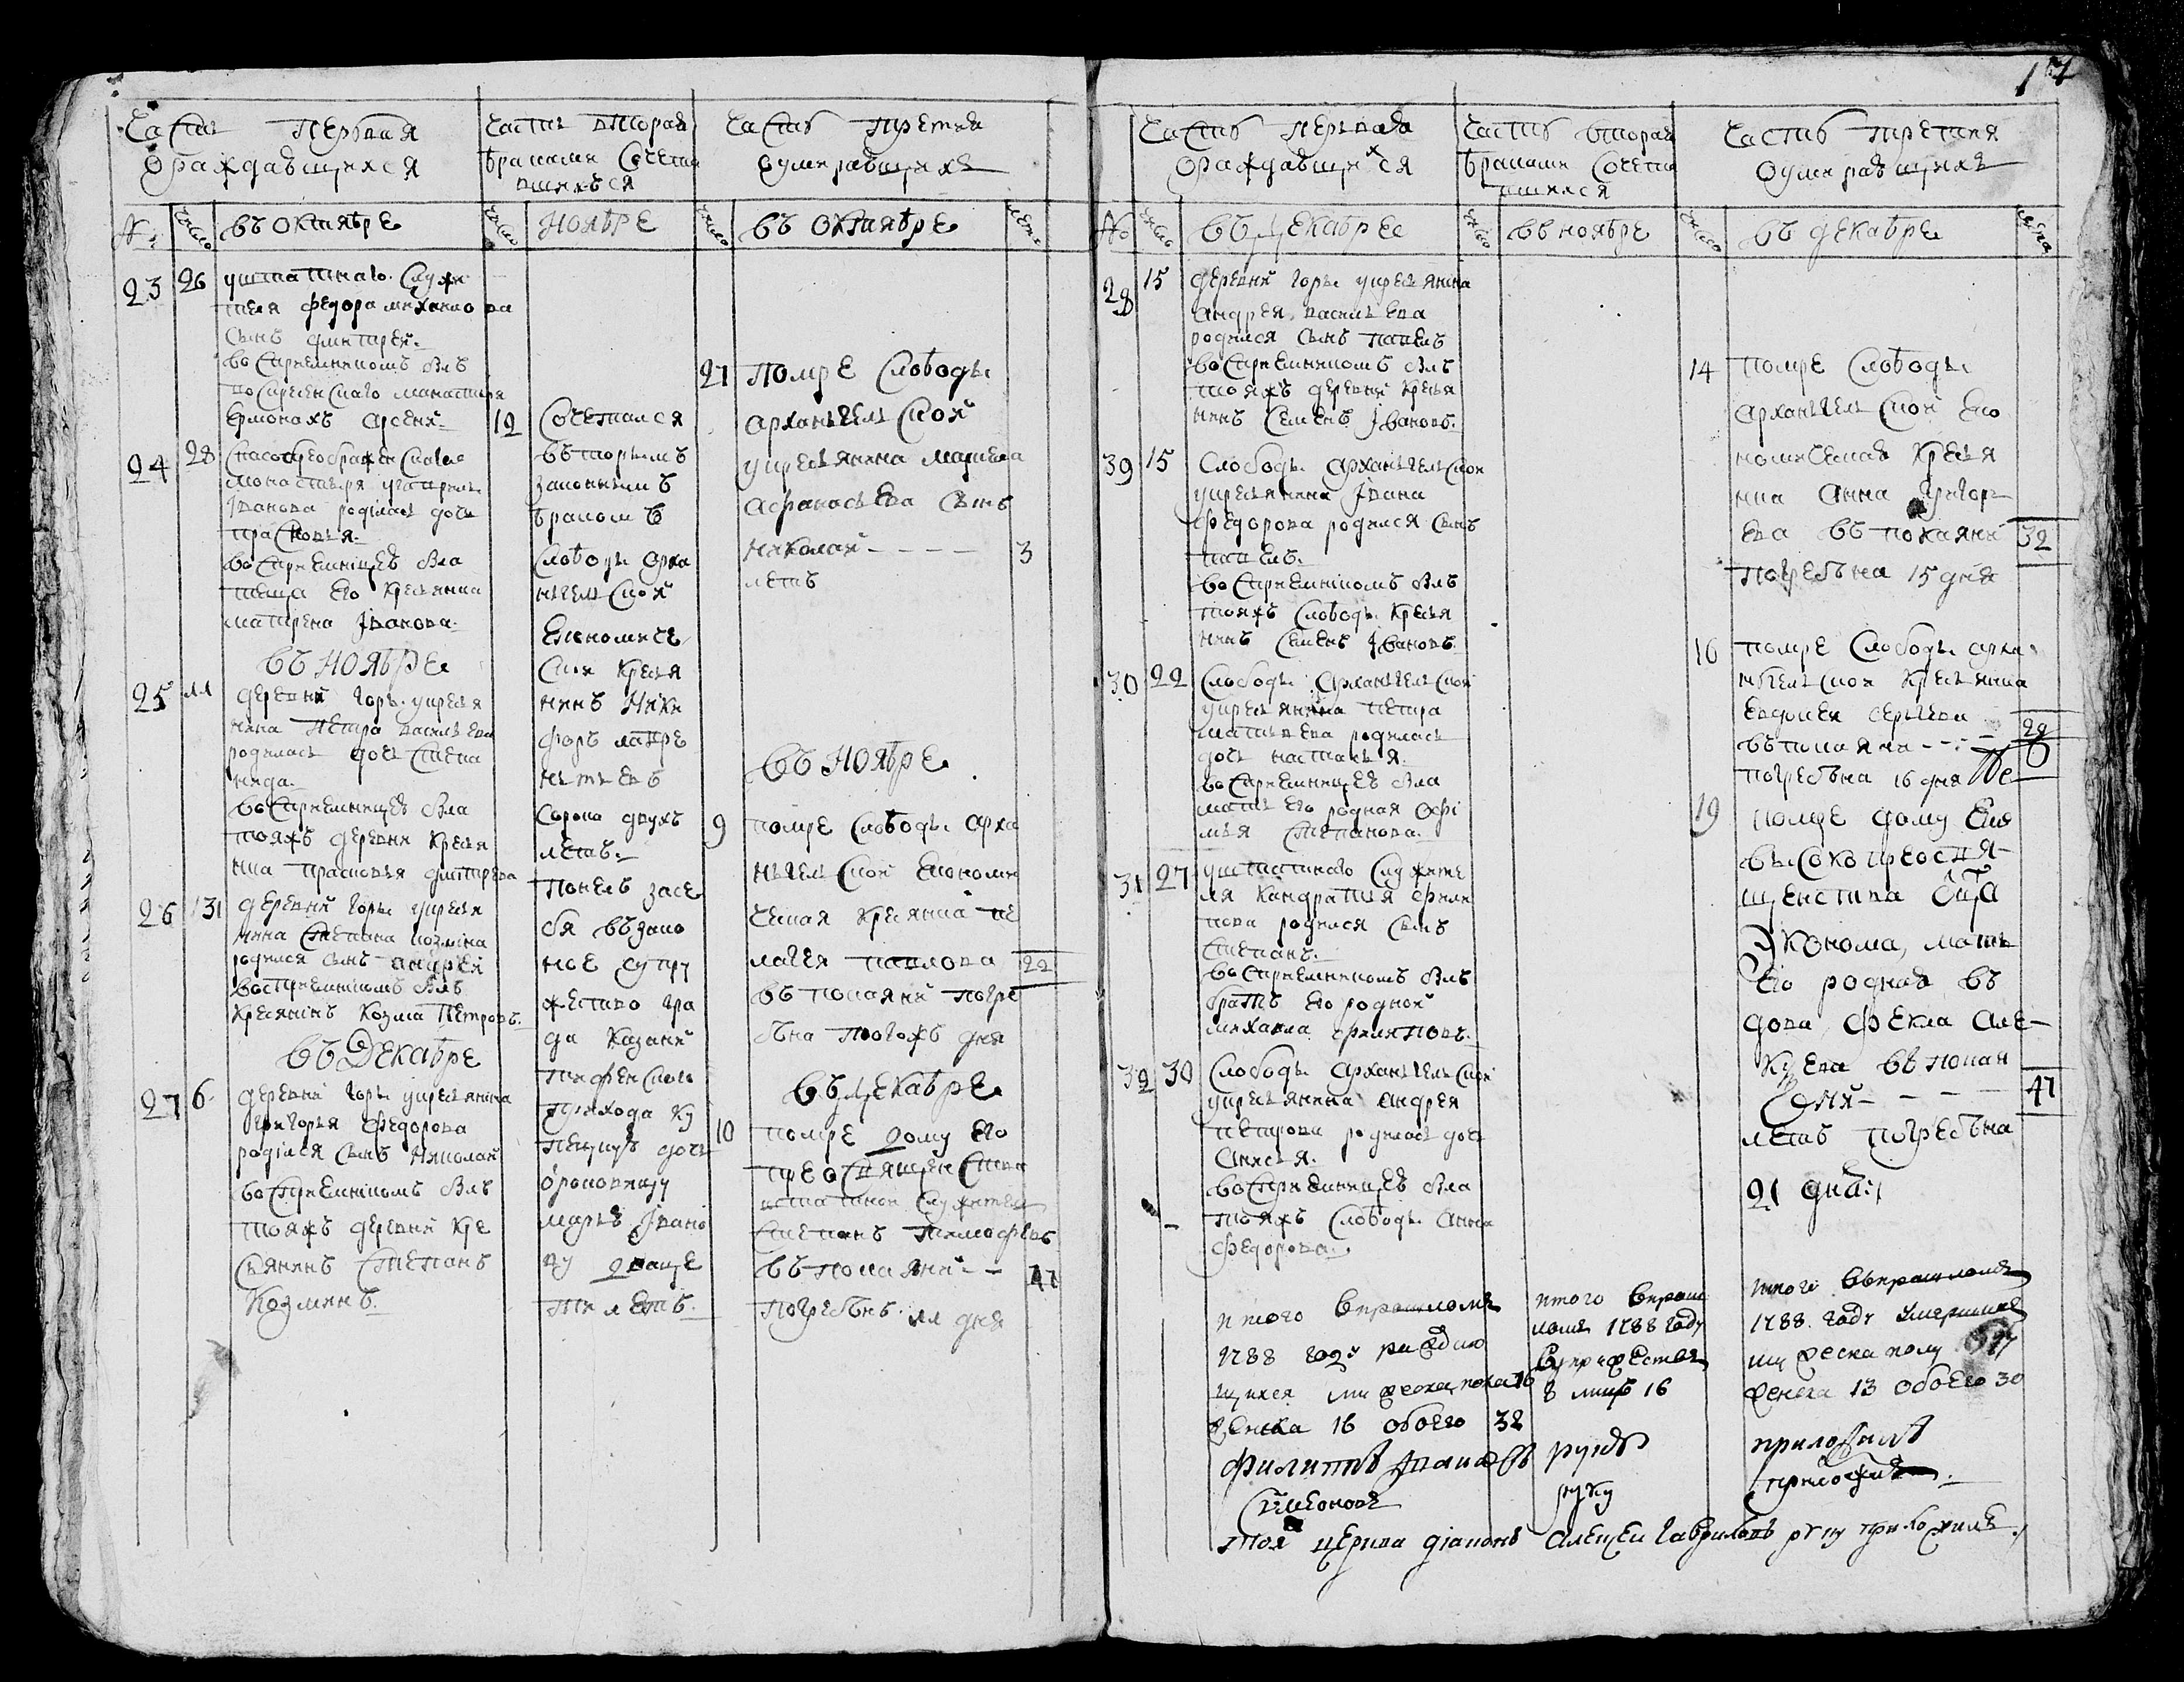 17
Часть первая
ораждавшихся
Часть вторая
бракомъ сочета
вшихъся
Часть третия
оумиравшихъ
№
число
въ октябре
число
ноябре
число
въ октябре
лета
23 26 уштатнаго служи
теля федора михаилова
сынъ дмитрей
восприемникомъ былъ
воскресенскаго манастыря
ермонахъ арсени
24 28 Спасопреображенскаго
монастыря
Иванова родилась дочь
прасковья
восприемницеъ была
теща его крестьянка
матрена Иванова
въ ноябре
25 11 деревни горъ укрестья
нина петра васильева
родилась дочь степа
нида
восприемницеъ была
тояжъ деревни крестья
нка прасковья дмитрева
26 131 деревни горъ укрестья
нина степана козмина
родился сынъ андрей
восприемникомъ былъ
крестянинъ Козма Петровъ
въ Декабре
27 6 деревни горъ укрестьянина
григорья федорова
родился сынъ николай
восприемникомъ былъ
тояжъ деревни кре
стьянинъ степанъ
Козминъ
12 Сочетался
въторымъ
законнымъ
бракомъ
слободы арха
нгельской
економиче
ской крестья
нинъ ники
форъ лавре
нтьевъ
сорока двухъ
летъ
понелъ засе
бя въ зако
ное супру
жество гра
да казани
прихода ку
пецкуъ дочь
мареъ Ивано
ву дватце
ти летъ
21 Помре слободы
архангельской
укрестьянина матвея
афанасьева сынъ
николай - - - - 3
летъ
въ ноябре
9 помре слободы арха
нгельской економи
ческая крестьянка пе
лагея павлова 22
въ покаяни погре
бена тогожъ дня
въ декабре
10 помре дому его
преосвященства
штатной служитель
степанъ тимофеевъ
въ покаяни - - 47
погребенъ 11 дня
Часть первая
ораждавшихся
Часть вторая
бракоми сочета
вшихся
Часть третия
оумиравшихъ
№
число
въ декабре
число
въ ноябре
число
въ декабре
лета
28 15 деревни горъ укрестьянина
андрея васильева
родился сынъ павелъ
восприемникомъ былъ
тояжъ деревни крестья
нинъ семенъ Ивановъ
39 15 Слободы архангельской
укрестьянина Ивана
федорова родился сынъ
павелъ
восприемникомъ былъ
тояжъ слободы крестья
нинъ семенъ Ивановъ
30 22 Слободы архангельской
укрестьянина петра
матвеева родилась
дочь наталья
восприемницеъ была
мать его родная офи
мья степанова
31 27 уштатнаго служите
ля кандратья фили
пова родился сынъ
степанъ
восприемникомъ былъ
братъ его родной
михаила филиповъ
32 30 Слободы архангельской
укрестьянина андрея
петрова родилась дочь
анисья
восприемницеъ была
тояжъ слободы анна
федорова
14 помре слободы
архангельской еко
номическая крестья
нка анна григорь
ева въ покаяни 32
погребена 15 дня
16 помре слободы арха
нгельской крестьянка
евдокея сергеева
въ покаяни - - 28
погребена 16 дня
19 помре дому его
высокопреосвя
щенства отца
Эконома, мать
его родная въ
дова фекла але
ксеева въ покая
ни - - - - 47
летъ погребена
21 дня
итого въпрошломъ
1788 году раждаю
щихся мужеска пола 16
женска 16 обоего 32
итого въпрош
ломъ 1788 году
супружества
8 лицъ 16
итого въпрошломъ
1788 году умершихъ
мужеска полу 17
женска 13 обоего 30
филиппъ Ивановъ руку приложилъ
Симеоновъ руку приложилъ
тоя церкви диаконъ Алексеи Гавриловъ руку приложилъ